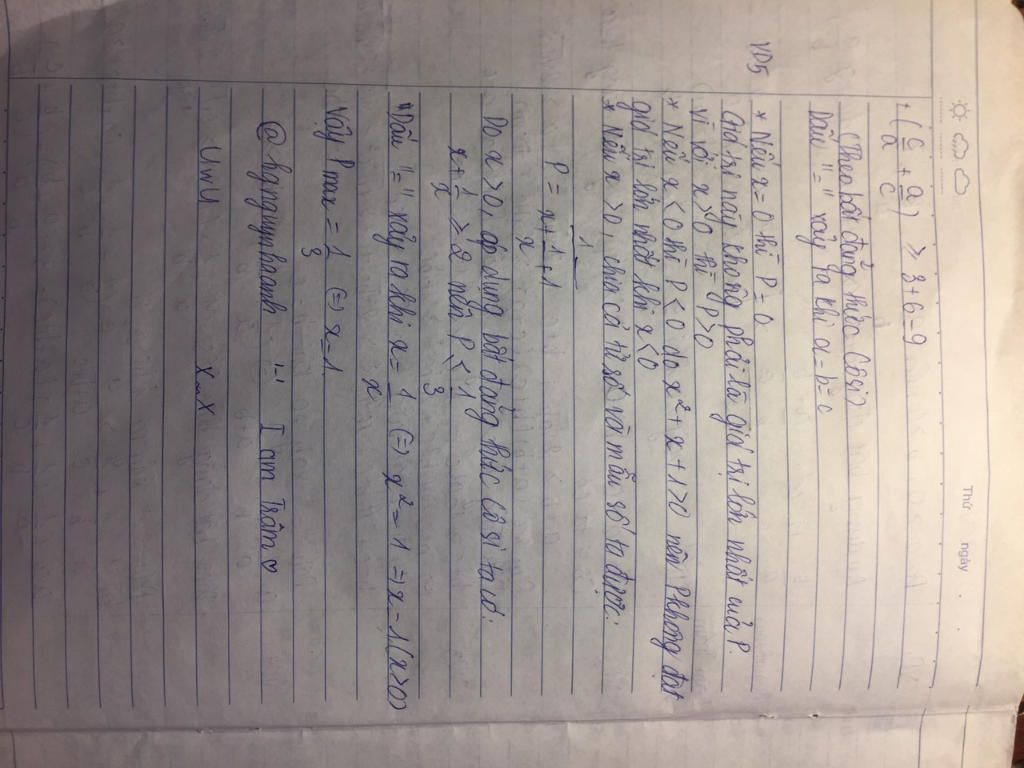 Thứ ngày
+ (c/a + a/c) ≥ 3+6=9
(Theo bất đẳng thức Cosi)
Dấu "=" xảy ra khi a=b=c
VD5
* Nếu x=0 thì P=0
Giá trị này không phải là giá trị lớn nhất của P
vì với x>0 thì P>0
* Nếu x<0 thì P<0 do x²+x+1>0 nên P không đạt
giá trị lớn nhất khi x<0
* Nếu x>0, chia cả tử số và mẫu số ta được:
P = 1/(x+1/x+1)
Do x>0, áp dụng bất đẳng thức Cô si ta có:
x+1/x ≥ 2 nên P ≤ 1/3
Dấu "=" xảy ra khi x=1/x (=) x²=1 => x=1 (x>0)
Vậy P max = 1/3 (=) x=1
I am Trâm ♡
UwU X_X